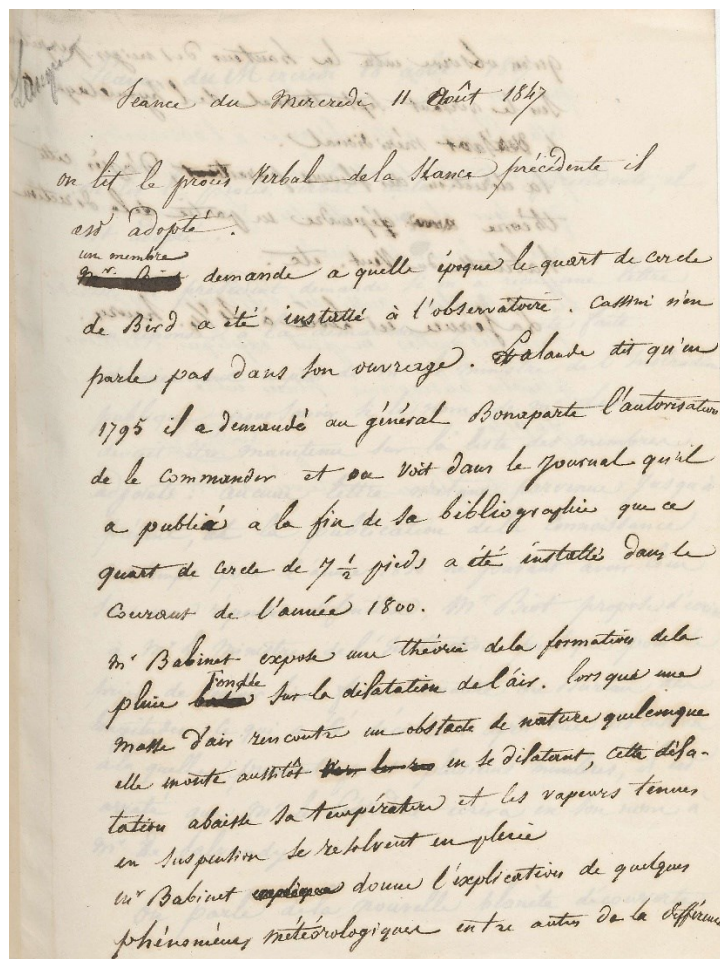 Séance du Mercredi 11 Août 1847
on lit le procès Verbal dela Séance précédente il
est adopté.
un membre
demande a quelle époque le quart de cercle
de Bird a été installé à l'observatoire. Cassini n'en
parle pas dans son ouvrage. Lalande dit qu'en
1795 il a demandé au général Bonaparte l'autorisation
de le commander et on voit dans le Journal qu'il
a publié a la fin de sa bibliographie que ce
quart de cercle de 7 1/2 pieds a été installé dans le
Courant de l'année 1800.
Mr Babinet expose une théorie dela formation dela
pluie Fondée sur la dilatation de l'air. lorsque une
masse d'air rencontre un obstacle de nature quelconque
elle monte aussitôt en se dilatant, cette dila-
tation abaisse sa température et les vapeurs tenues
en suspension se resolvent en pluie
Mr Babinet donne l'explication de quelques
phénomènes météorologiques entre autres de la différence